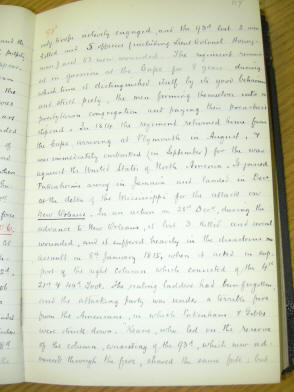 57
58
only troops actively engaged, and the 93rd lost 2 men
killed and 5 officers (including Lieut Colonel Honey-
man) and 53 men wounded. The regiment remained
in garrison at the Cape for 8 years during
which time it distinguished itself by its good behaviour
and strict piety, the men forming themselves into a
presbyterian congregation and paying their preacher
stipend. In 1814 the regiment returned home from
the Cape, arriving at Plymouth in August, &
was immediately embarked (in September) for the war
against the United States of North America. It joined
Pakenhams army in Jamaica and landed in Decr
at the delta of the Mississippi for the attack on
New Orleans. In an action on 28th Decr, during the
advance to New Orleans, it lost 3 killed and several
wounded, and it suffered heavily in the disastrous
assault on 8th January 1815, when it acted in sup-
port of the right column which consisted of the 4th
21st & 44th Foot. The scaling ladders had been forgotten
and the attacking party was under a terrible fire
from the Americans, in which Pakenham & Gibbs
were struck down. Keane, who led on the reserve
of the column, consisting of the 93rd, which now ad-
vanced through the fire, shared the same fate; but